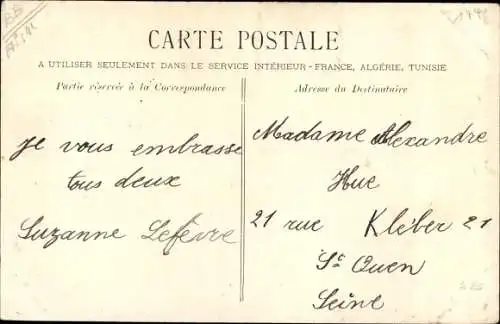 CARTE POSTALE
A UTILISER SEULEMENT DANS LE SERVICE INTÉRIEUR - FRANCE, ALGÉRIE, TUNISIE
Partie réservée à la Correspondance
Adresse du Destinataire
Je vous embrasse
tous deux
Suzanne Lefèvre
Madame Alexandre
Hue
21 rue Kléber 21
St Ouen
Seine